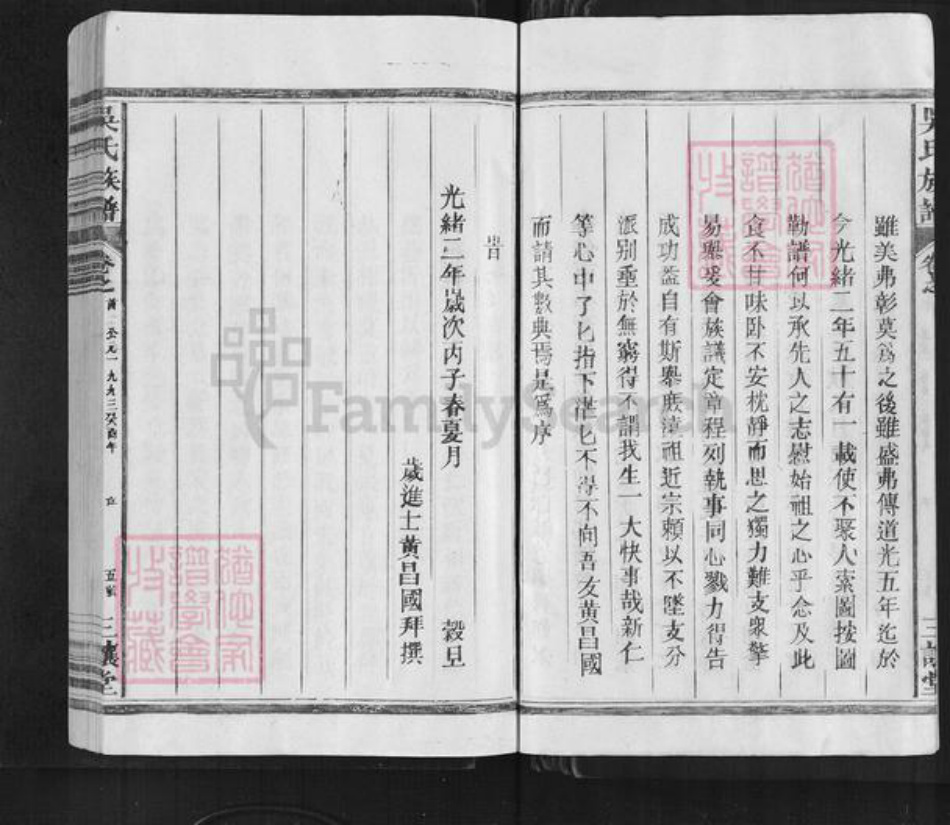 雖美弗彰莫為之後雖盛弗傳道光五年迄於
今光緒二年五十有一載使不聚人索圖按圖
勒譜何以承先人之志慰始祖之心乎念及此
食不甘味卧不安枕靜而思之獨力難支衆擎
易舉爰會族議定章程列執事同心戮力得告
成功益自有斯舉庶漳祖近宗賴以不墜支分
派别垂於無窮得不謂我生一大快事哉新仁
等心中了匕指下茫匕不得不向吾友黃昌國
而請其數典焉是為序
旹
光緒二年歲次丙子春夏月 穀旦
歲進士黃昌國拜撰
吳氏族譜
公元一九九三癸酉年
三讓堂
吳氏族譜
三讓堂
FamilySearch